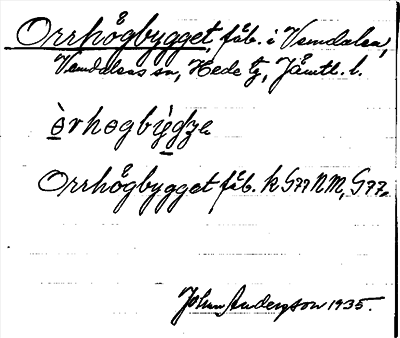 Orrhågbygget, fäb. i Vemdalen,
Vemdalens sn, Hede tg, Jämtl. l.
òrhøgbỳgʒe
Orrhågbygget fäb. k G77 NM, G77,
Johan Anderson 1935.